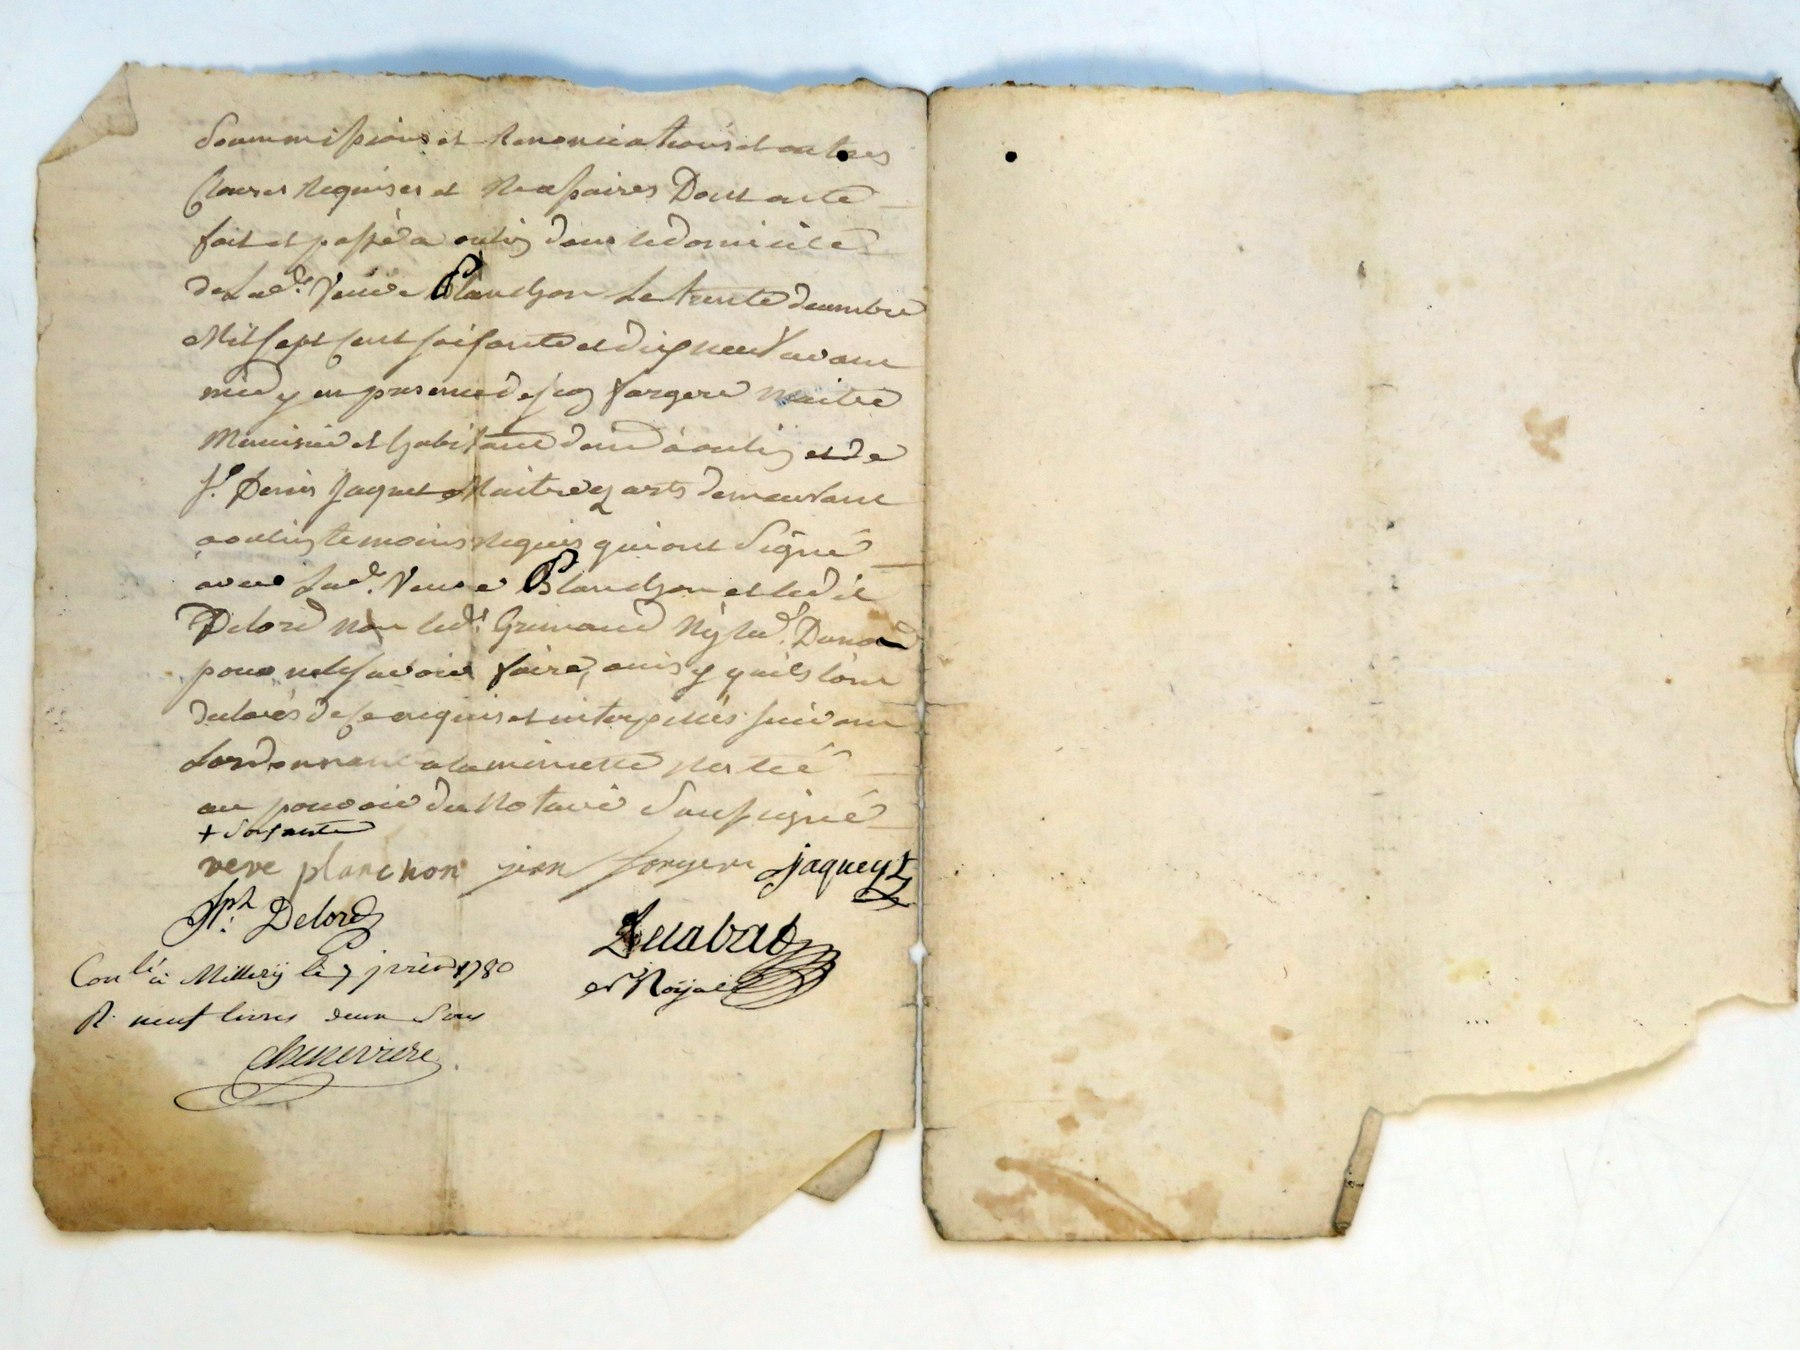 Soummissions et Renonciations et autres
Clauses Requises et Necessaires Dont acte
fait et passé a oulin dans le domicile
de Lad.e Veuve Planchon Le trente decembre
Mil sept cent soisante et dix neuf avant
midy en presence de jean fargere Maitre
Menuisie et habitant dud oulin et de
s.r Denis Jaquet Maitre ez arts demeurant
a oulin temoins Requis qui ont Signé
avec Lad.e Veuve Planchon et led it
Delord non led.t Grimaud Ny lad.e
pour ne le savoir faire, ainsy qu'ils l'ont
declarés de ce enquis et interpellés suivant
Lordonnance a la minutte Restée
au pouvoir du Notaire Soussigné
+ Soisante
veve planchon jean fargere jaquey
Jph Delord
Con.lé à Millerÿ le 7 jvier 1780
R. neuf livres deux Sous
er Royal
chenevriere